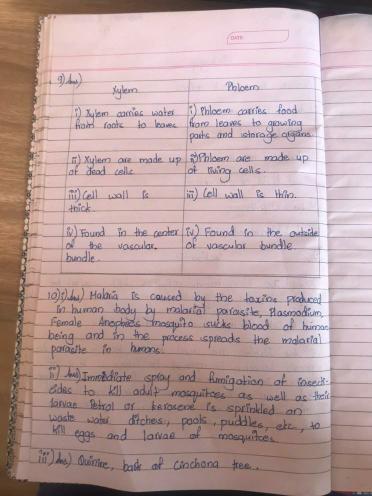 DATE
9) Ans)
Xylem
Phloem
i) Xylem carries water
from roots to leaves
i) Phloem carries food
from leaves to growing
parts and storage organs
ii) Xylem are made up
of dead cells
ii) Phloem are made up
of living cells.
iii) Cell wall is
thick.
iii) Cell wall is thin.
iv) Found in the center
of the vascular
bundle.
iv) Found in the outside
of vascular bundle.
10) i) Ans) Malaria is caused by the toxins produced
in human body by malarial parasite, Plasmodium,
Female Anopheles mosquito sucks blood of human
being and in the process spreads the malarial
parasite in humans.
ii) Ans) Immediate spray and fumigation of insecti-
cides to kill adult mosquitoes as well as their
larvae Petrol or kerosene is sprinkled on
waste water ditches, pools, puddles, etc, to
kill eggs and larvae of mosquitoes
iii) Ans) Quinine, bark of Cinchona tree.